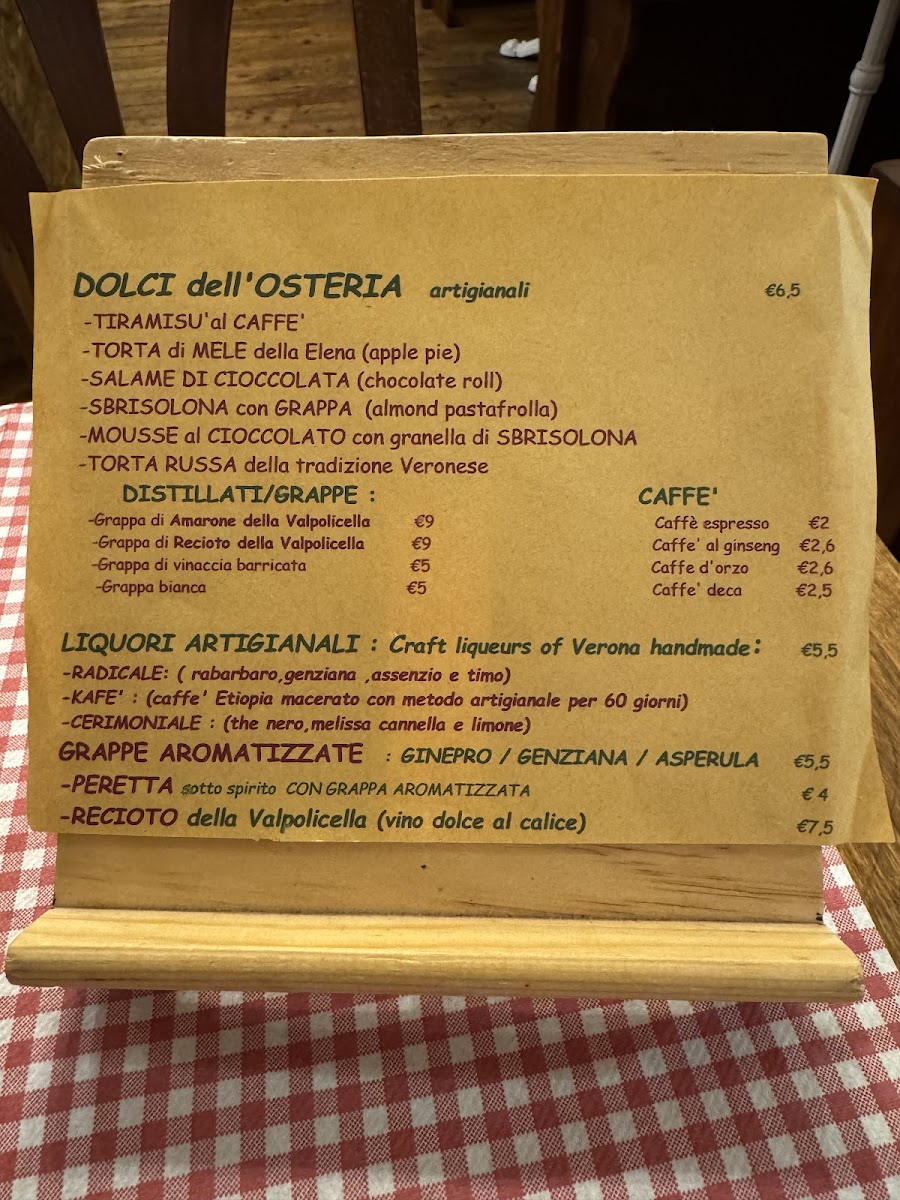 DOLCI dell'OSTERIA artigianali €6,5
-TIRAMISU'al CAFFE'
-TORTA di MELE della Elena (apple pie)
-SALAME DI CIOCCOLATA (chocolate roll)
-SBRISOLONA con GRAPPA (almond pastafrolla)
-MOUSSE al CIOCCOLATO con granella di SBRISOLONA
-TORTA RUSSA della tradizione Veronese
DISTILLATI/GRAPPE :
-Grappa di Amarone della Valpolicella €9
-Grappa di Recioto della Valpolicella €9
-Grappa di vinaccia barricata €5
-Grappa bianca €5
CAFFE'
Caffè espresso €2
Caffe' al ginseng €2,6
Caffe d'orzo €2,6
Caffe' deca €2,5
LIQUORI ARTIGIANALI : Craft liqueurs of Verona handmade: €5,5
-RADICALE: ( rabarbaro,genziana ,assenzio e timo)
-KAFE' : (caffe' Etiopia macerato con metodo artigianale per 60 giorni)
-CERIMONIALE : (the nero,melissa cannella e limone)
GRAPPE AROMATIZZATE : GINEPRO / GENZIANA / ASPERULA €5,5
-PERETTA sotto spirito CON GRAPPA AROMATIZZATA € 4
-RECIOTO della Valpolicella (vino dolce al calice) €7,5